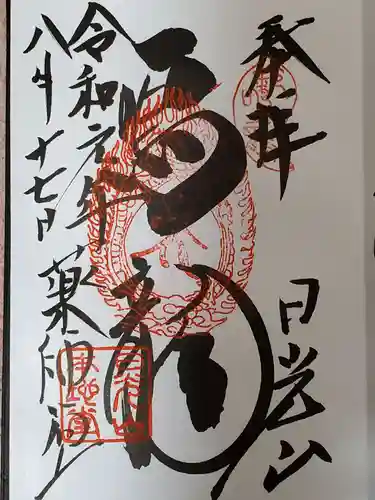 奉拝
日光山
鳴龍
令和元年
八月十七日
薬師堂